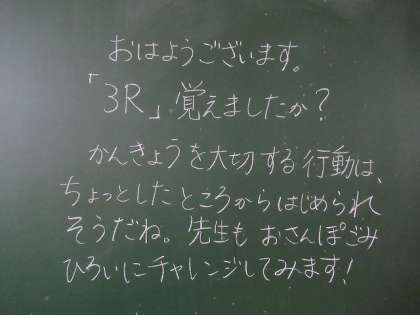 おはようございます。
「3R」覚えましたか?
かんきょうを大切する行動は、
ちょっとしたところからはじめられ
そうだね。先生も おさんぽごみ
ひろいにチャレンジしてみます!